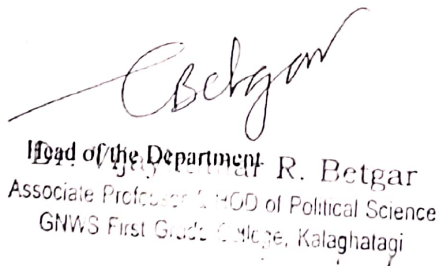 Betgar
Head of the Department
R. Betgar
Associate Professor & HOD of Political Science
GNWS First Grade College, Kalaghatagi